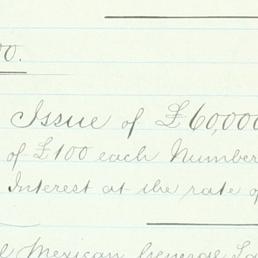 00.
Issue of £60,000
of £100 each Number
Interest at the rate of
Mexican General